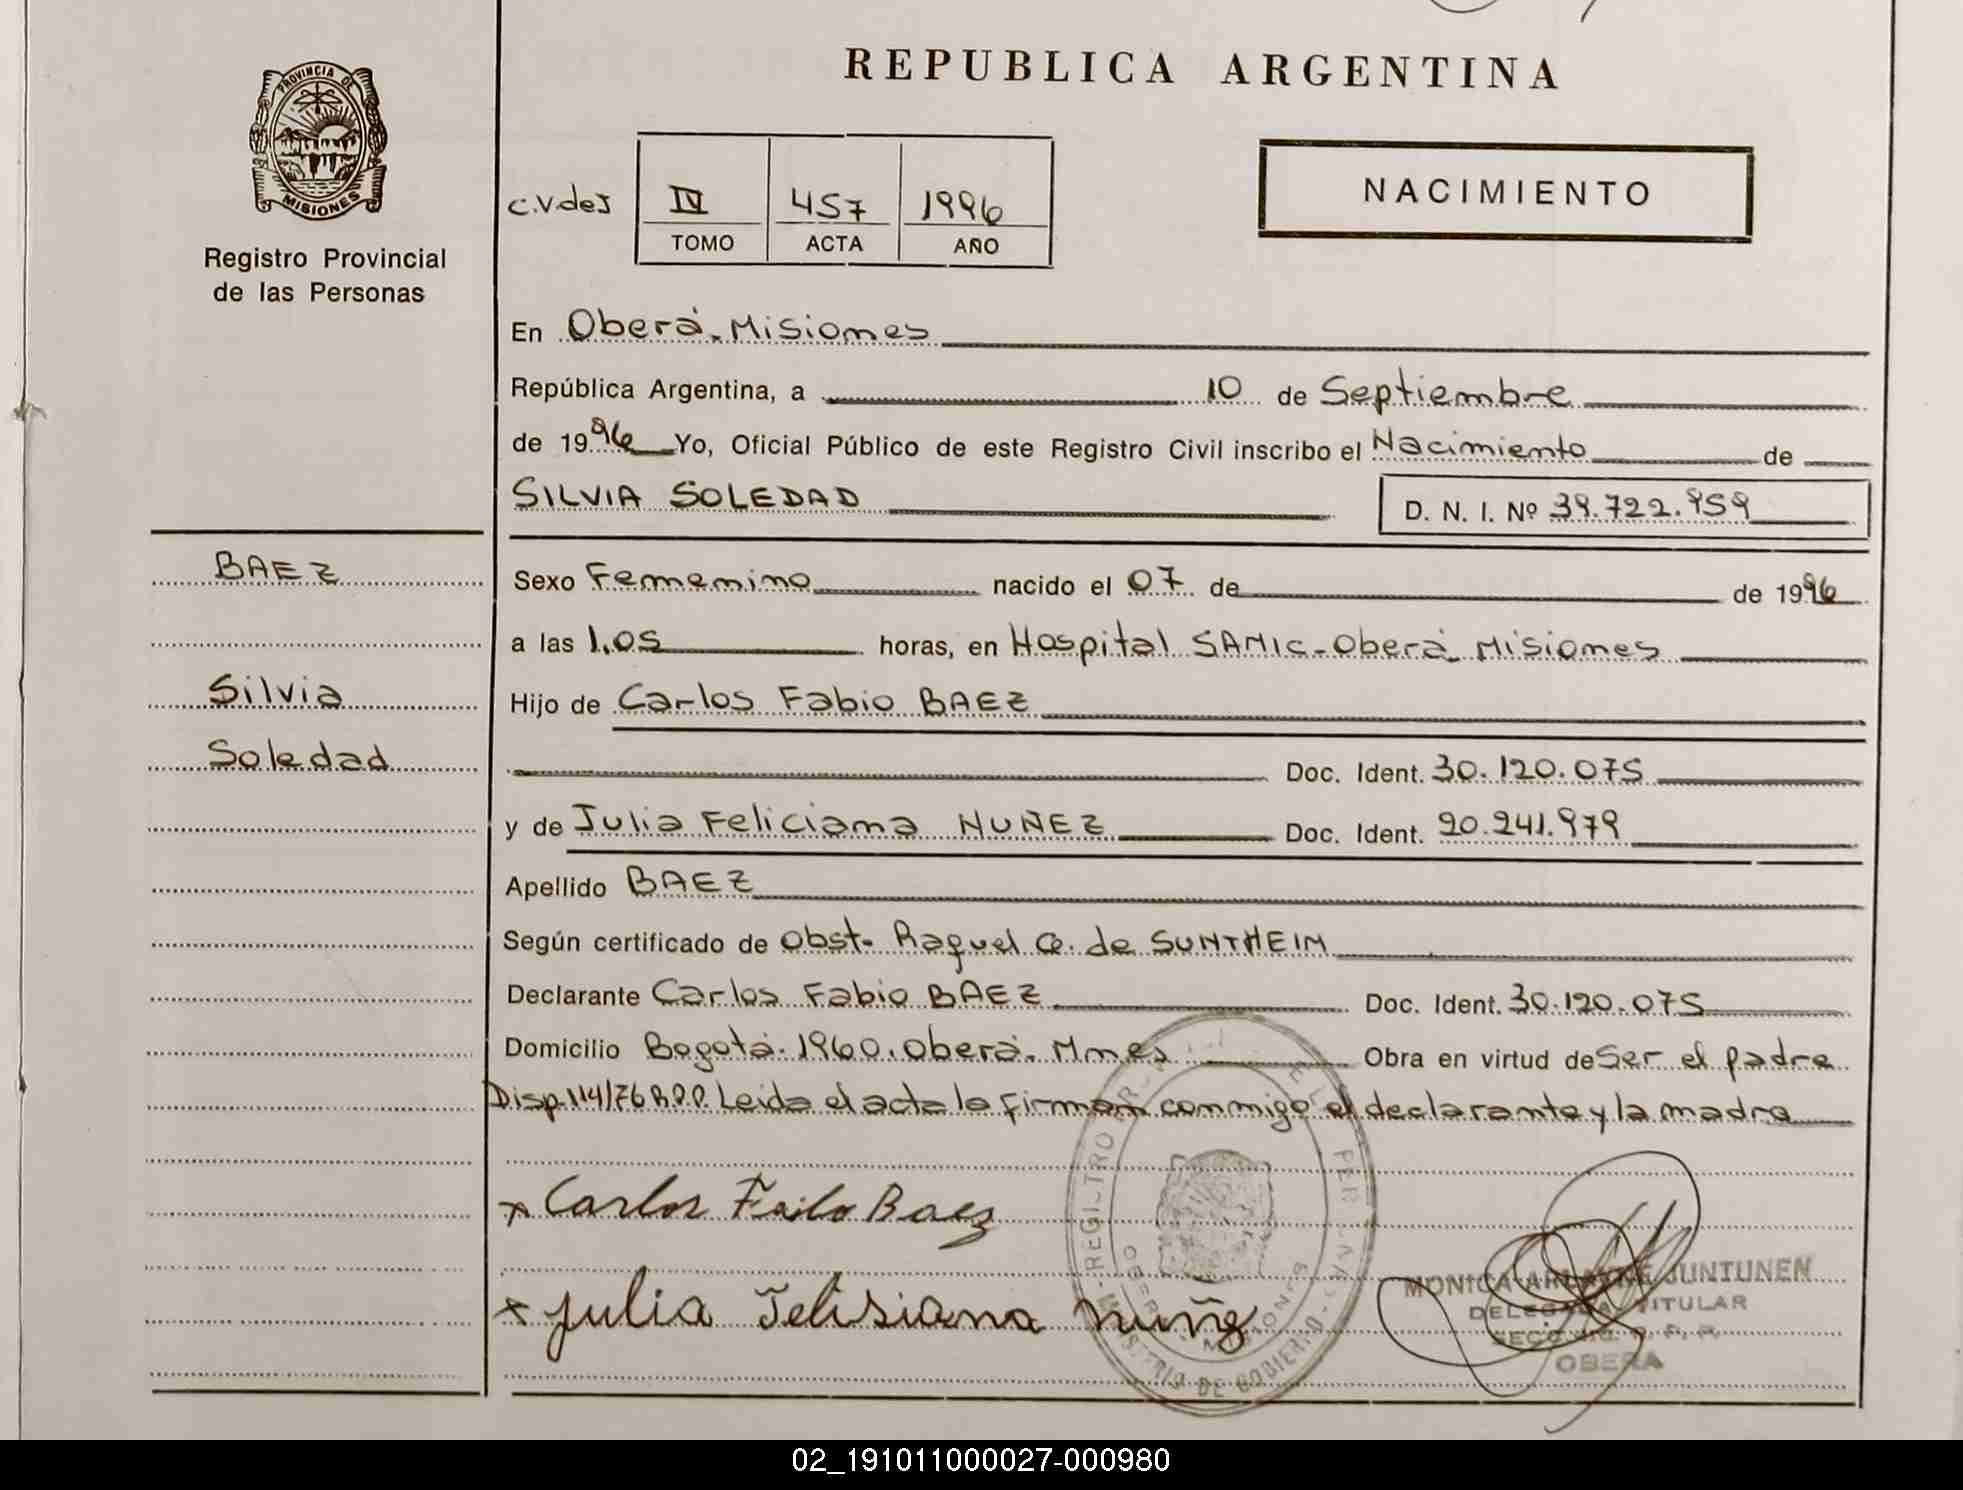 REPUBLICA ARGENTINA
PROVINCIA DE
MISIONES
Registro Provincial
de las Personas
c.v.des
IV 457 1996
TOMO ACTA AÑO
NACIMIENTO
En Oberá. Misiones
República Argentina, a 10 de Septiembre
de 1996 Yo, Oficial Público de este Registro Civil inscribo el Nacimiento de
SILVIA SOLEDAD D. N. I. Nº 39.722.959
BAEZ
Silvia
Soledad
Sexo Femenino nacido el 07 de de 1996
a las 1.05 horas, en Hospital SAMIC-Oberá Misiones
Hijo de Carlos Fabio BAEZ
Doc. Ident. 30.120.075
y de Julia Feliciana NUÑEZ Doc. Ident. 20.241.979
Apellido BAEZ
Según certificado de Obst. Raquel de SUNTHEIM
Declarante Carlos Fabio BAEZ Doc. Ident. 30.120.075
Domicilio Bogotá. 1960. Oberá. Mnes Obra en virtud de Ser el padre
Disp. 114/76 R.P.P. Leida el acta la firman conmigo el declarante y la madre
x Carlos Fabio Baez
x Julia Felisiana nuñe
REGISTRO
OBERA MISIONES
MINISTERIO DE GOBIERNO
MONICA JUNTUNEN
DELEGADA TITULAR
OBERA
02_191011000027-000980